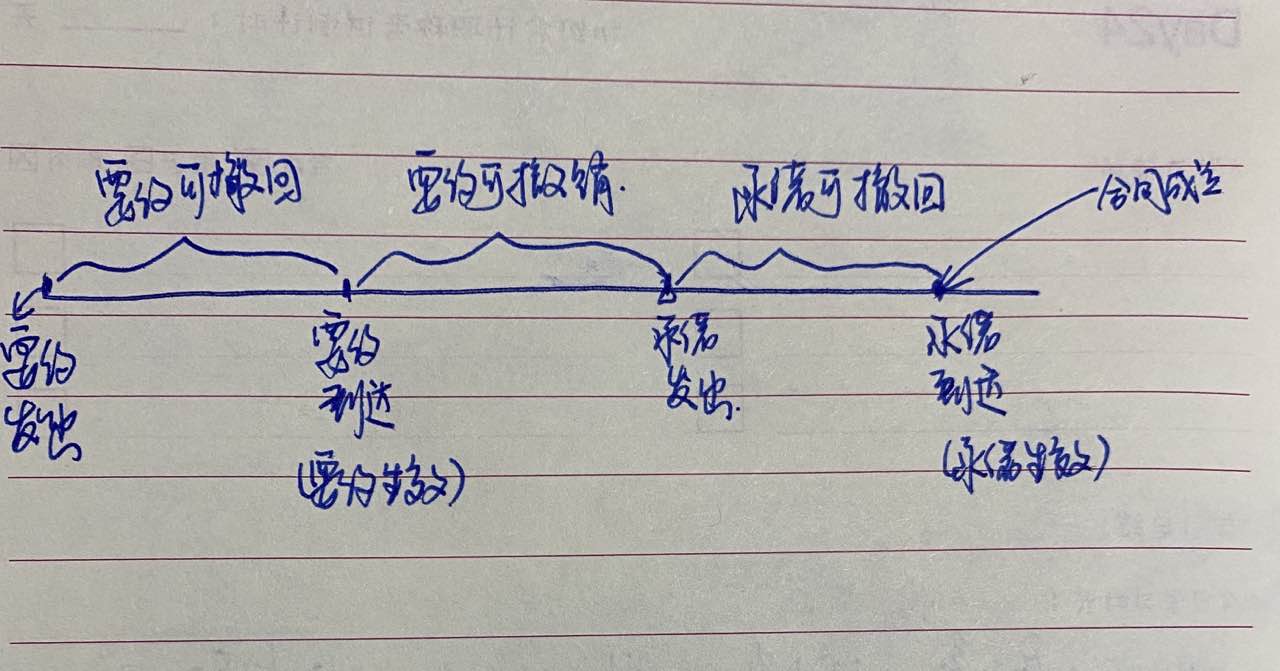 要约可撤回 要约可撤销. 承诺可撤回 合同成立
要约 要约 承诺 承诺
发出 到达 发出. 到达
(要约生效) (承诺生效)